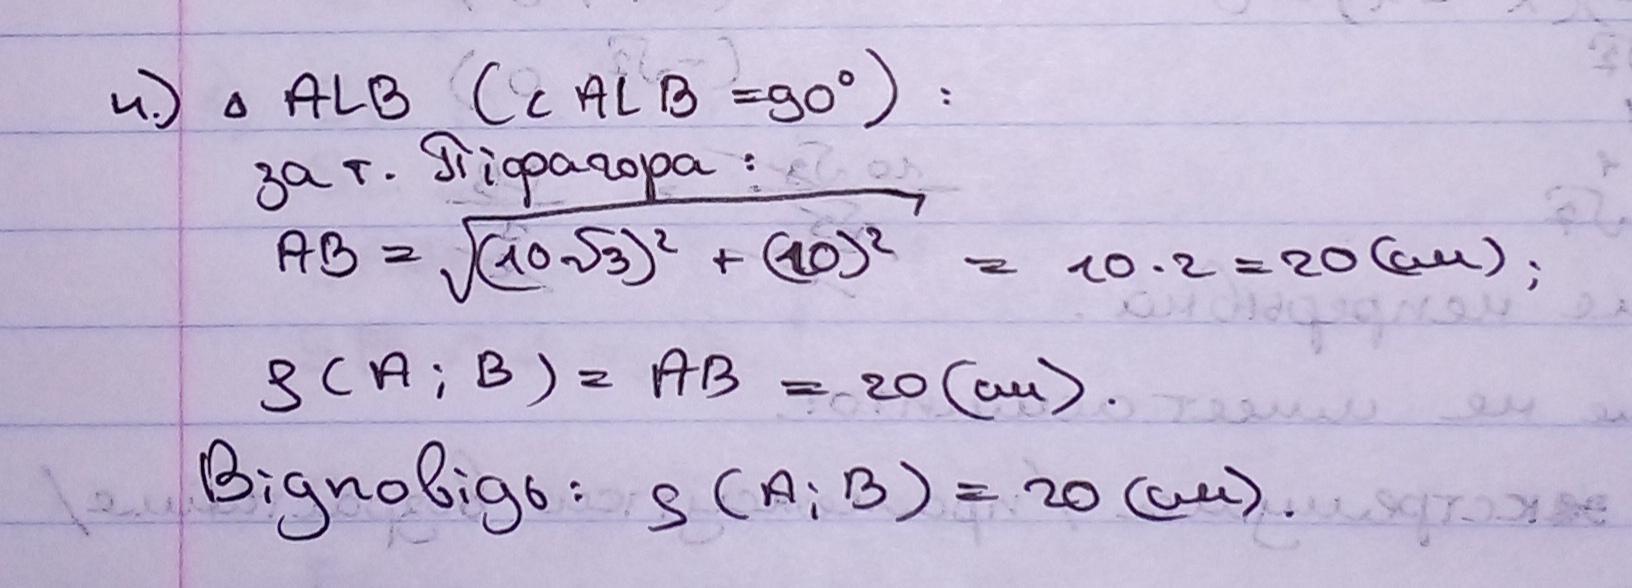 4.) △ ALB (∠ ALB = 90°) :
за т. Піфагора :
AB = √((10√3)² + (10)²) = 10 · 2 = 20 (см) ;
ρ (A ; B) = AB = 20 (см) .
Відповідь : ρ (A ; B) = 20 (см) .